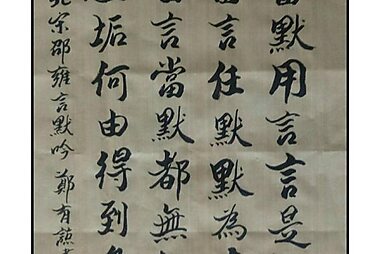 默用言言是
言任默默為
言當默都無
垢何由得到
宋邵雍言默吟 鄭有